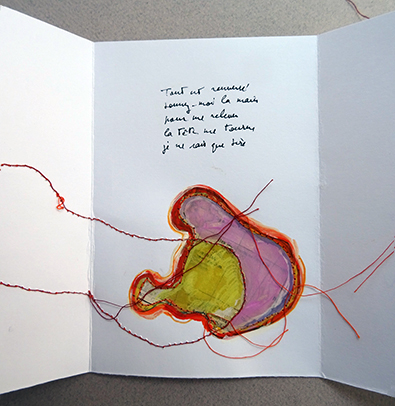 Tout est renversé
donnez-moi la main
pour me relever
la tête me tourne
je ne sais que dire